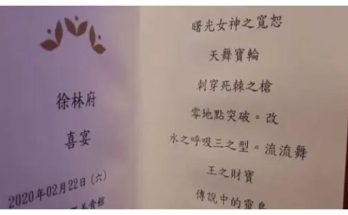 徐林府
喜宴
2020年02月22日(六)
美食館
曙光女神之寬恕
天舞寶輪
刺穿死棘之槍
零地點突破。改
水之呼吸三之型。流流舞
王之財寶
傳說中的靈龜